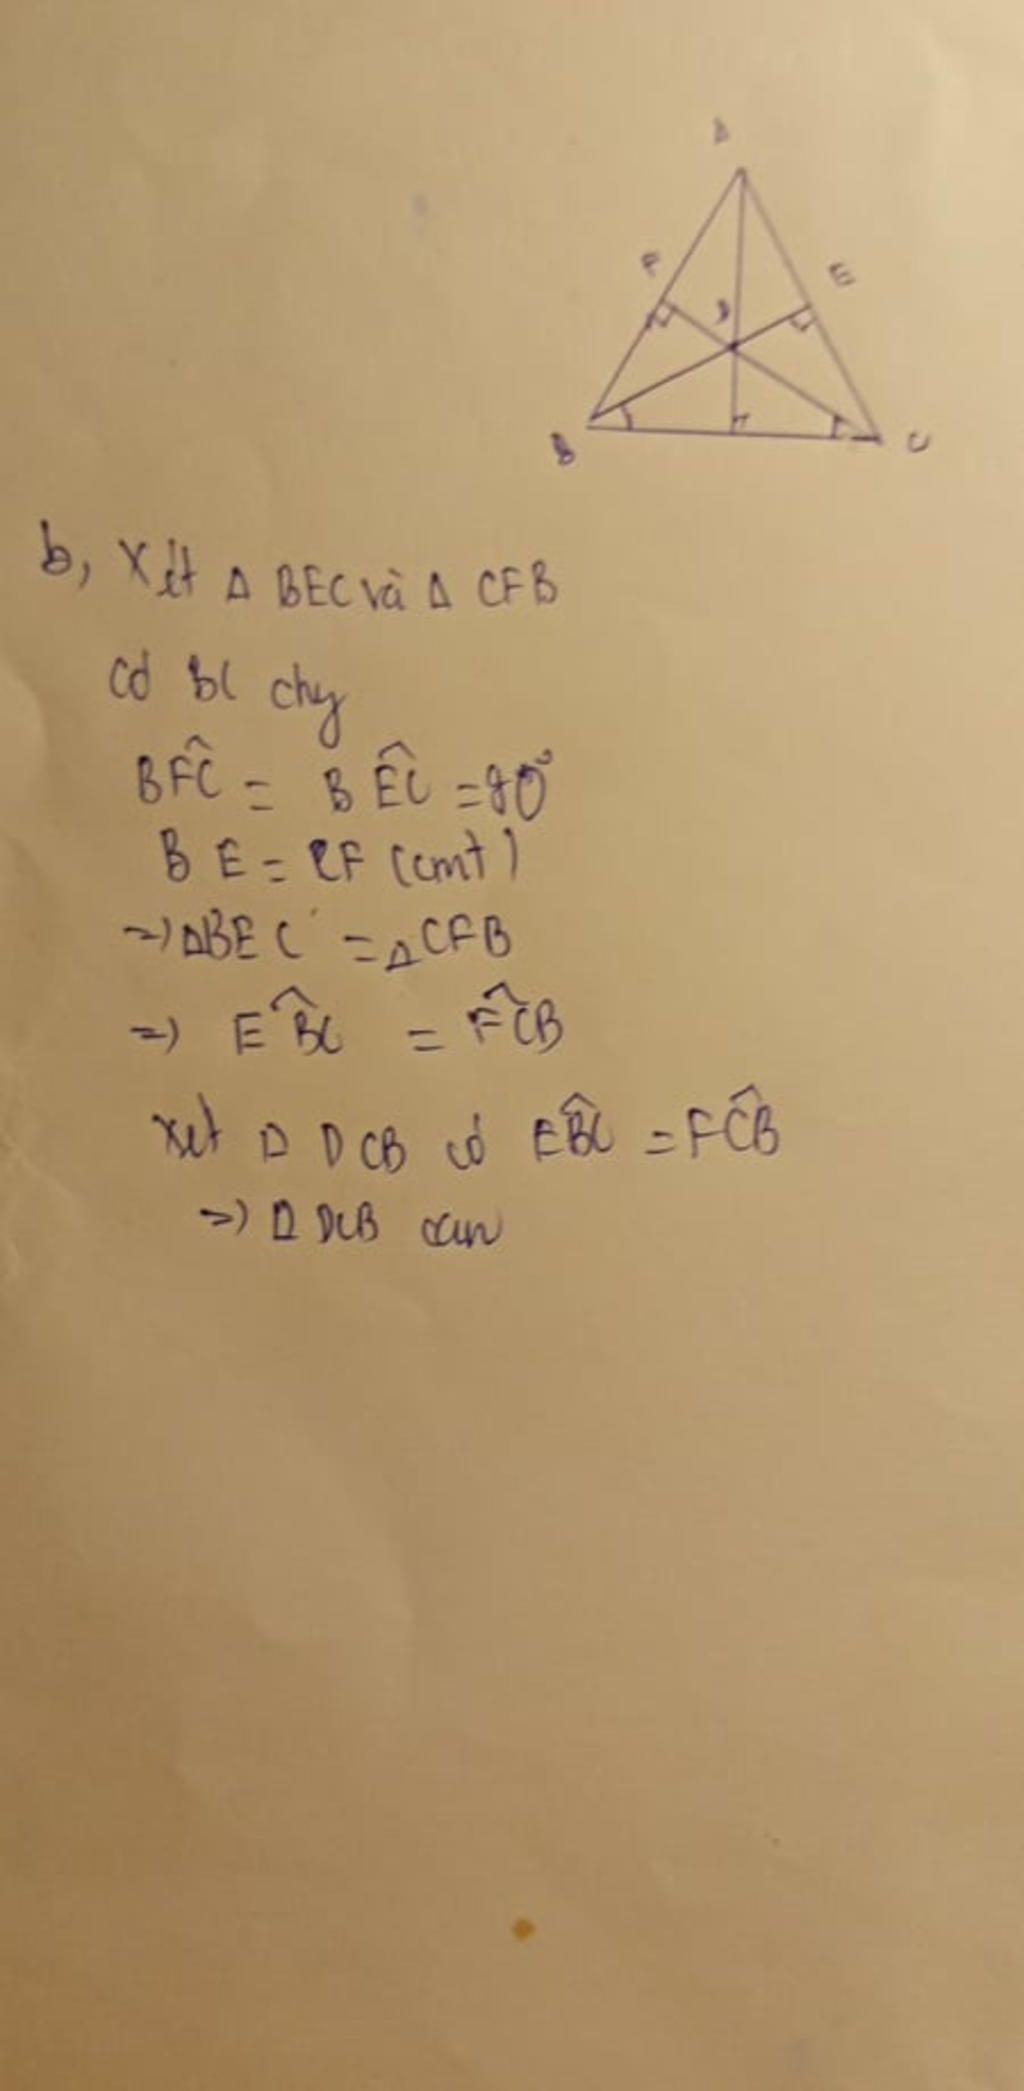 A
F
E
D
B
C
b, Xét Δ BEC và Δ CFB
Có BC chg
BFC = BEC = 90°
BE = CF (cmt)
=> ΔBEC = ΔCFB
=> EBC = FCB
xet Δ DCB có EBC = FCB
=> Δ DCB cân